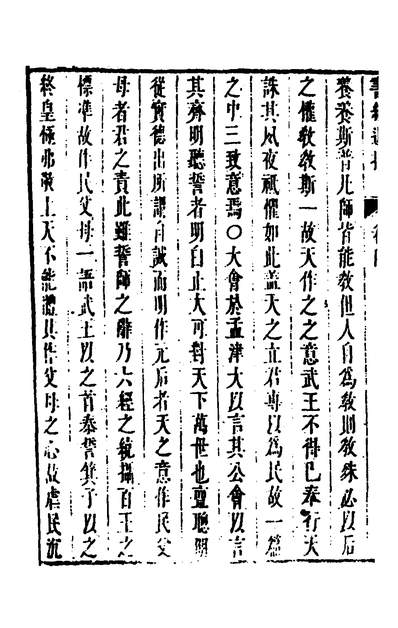 養養斯普凡師皆能教但人自為教則教殊必以后
之權教教斯一故天作之之意武王不得已奉行天
誅其夙夜祗懼如此盖天之立君專以為民故一篇
之中三致意焉○大會於孟津大以言其公會以言
其齊明聽誓者明白止大可對天下萬世也亶聰明
從實德出所謂自誠而明作元后者天之意作民父
母者君之責此雖誓師之辭乃六經之統攝百王之
標準故作民父母一語武王以之首泰誓箕子以之
終皇極弗敬上天不能體其作父母之心故虐民沉